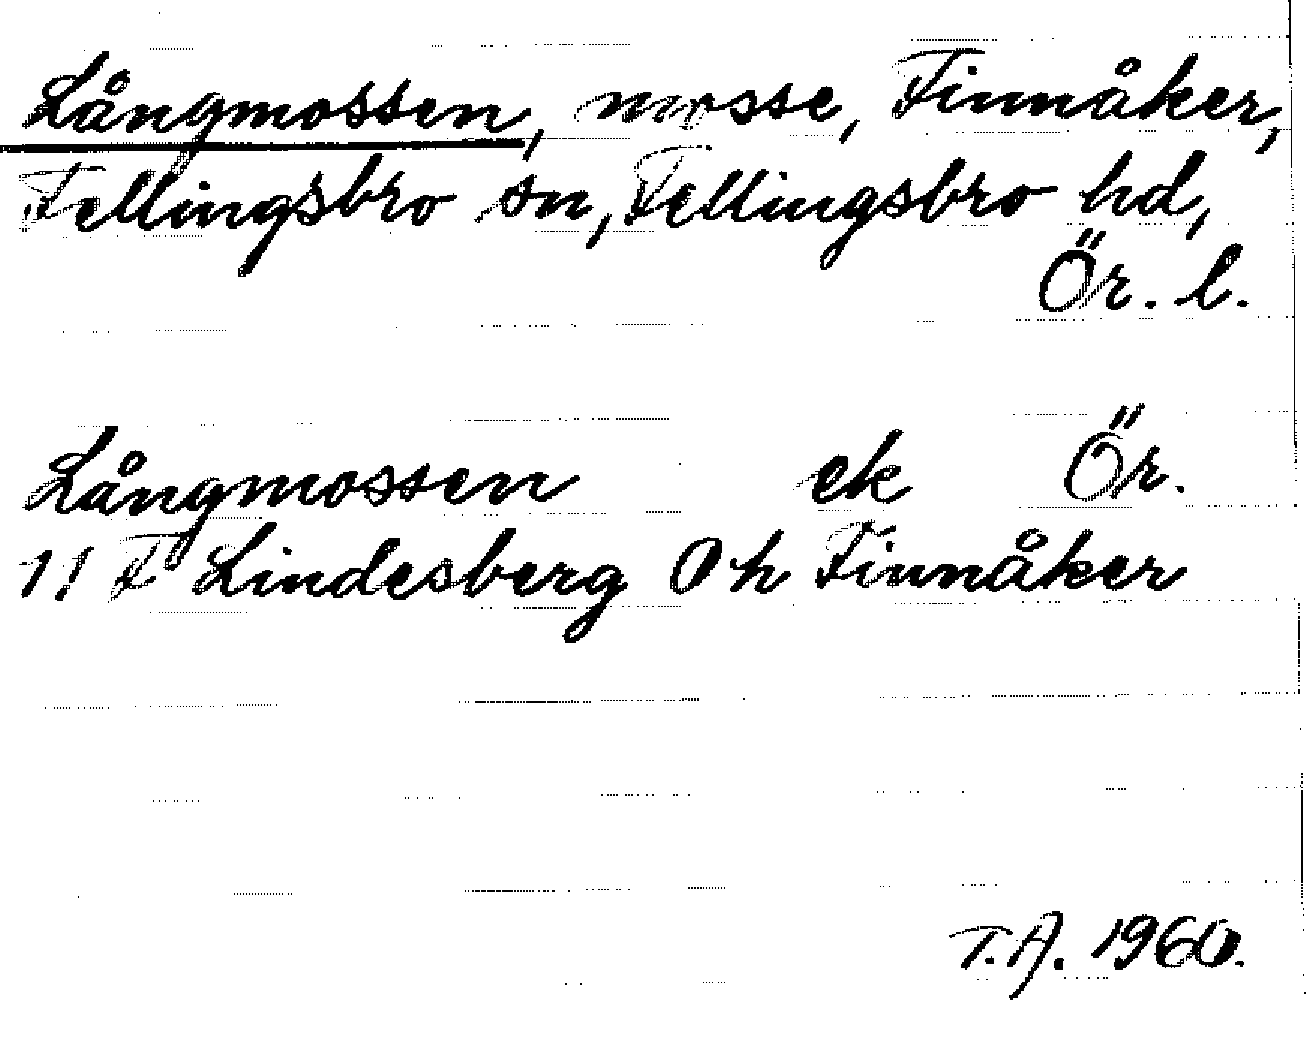 Långmossen, mosse, Finnåker,
Fellingsbro sn, Fellingsbro hd,
Ör. l.
Långmossen ek Ör.
11 F Lindesberg Öh Finnåker
T.A. 1960.